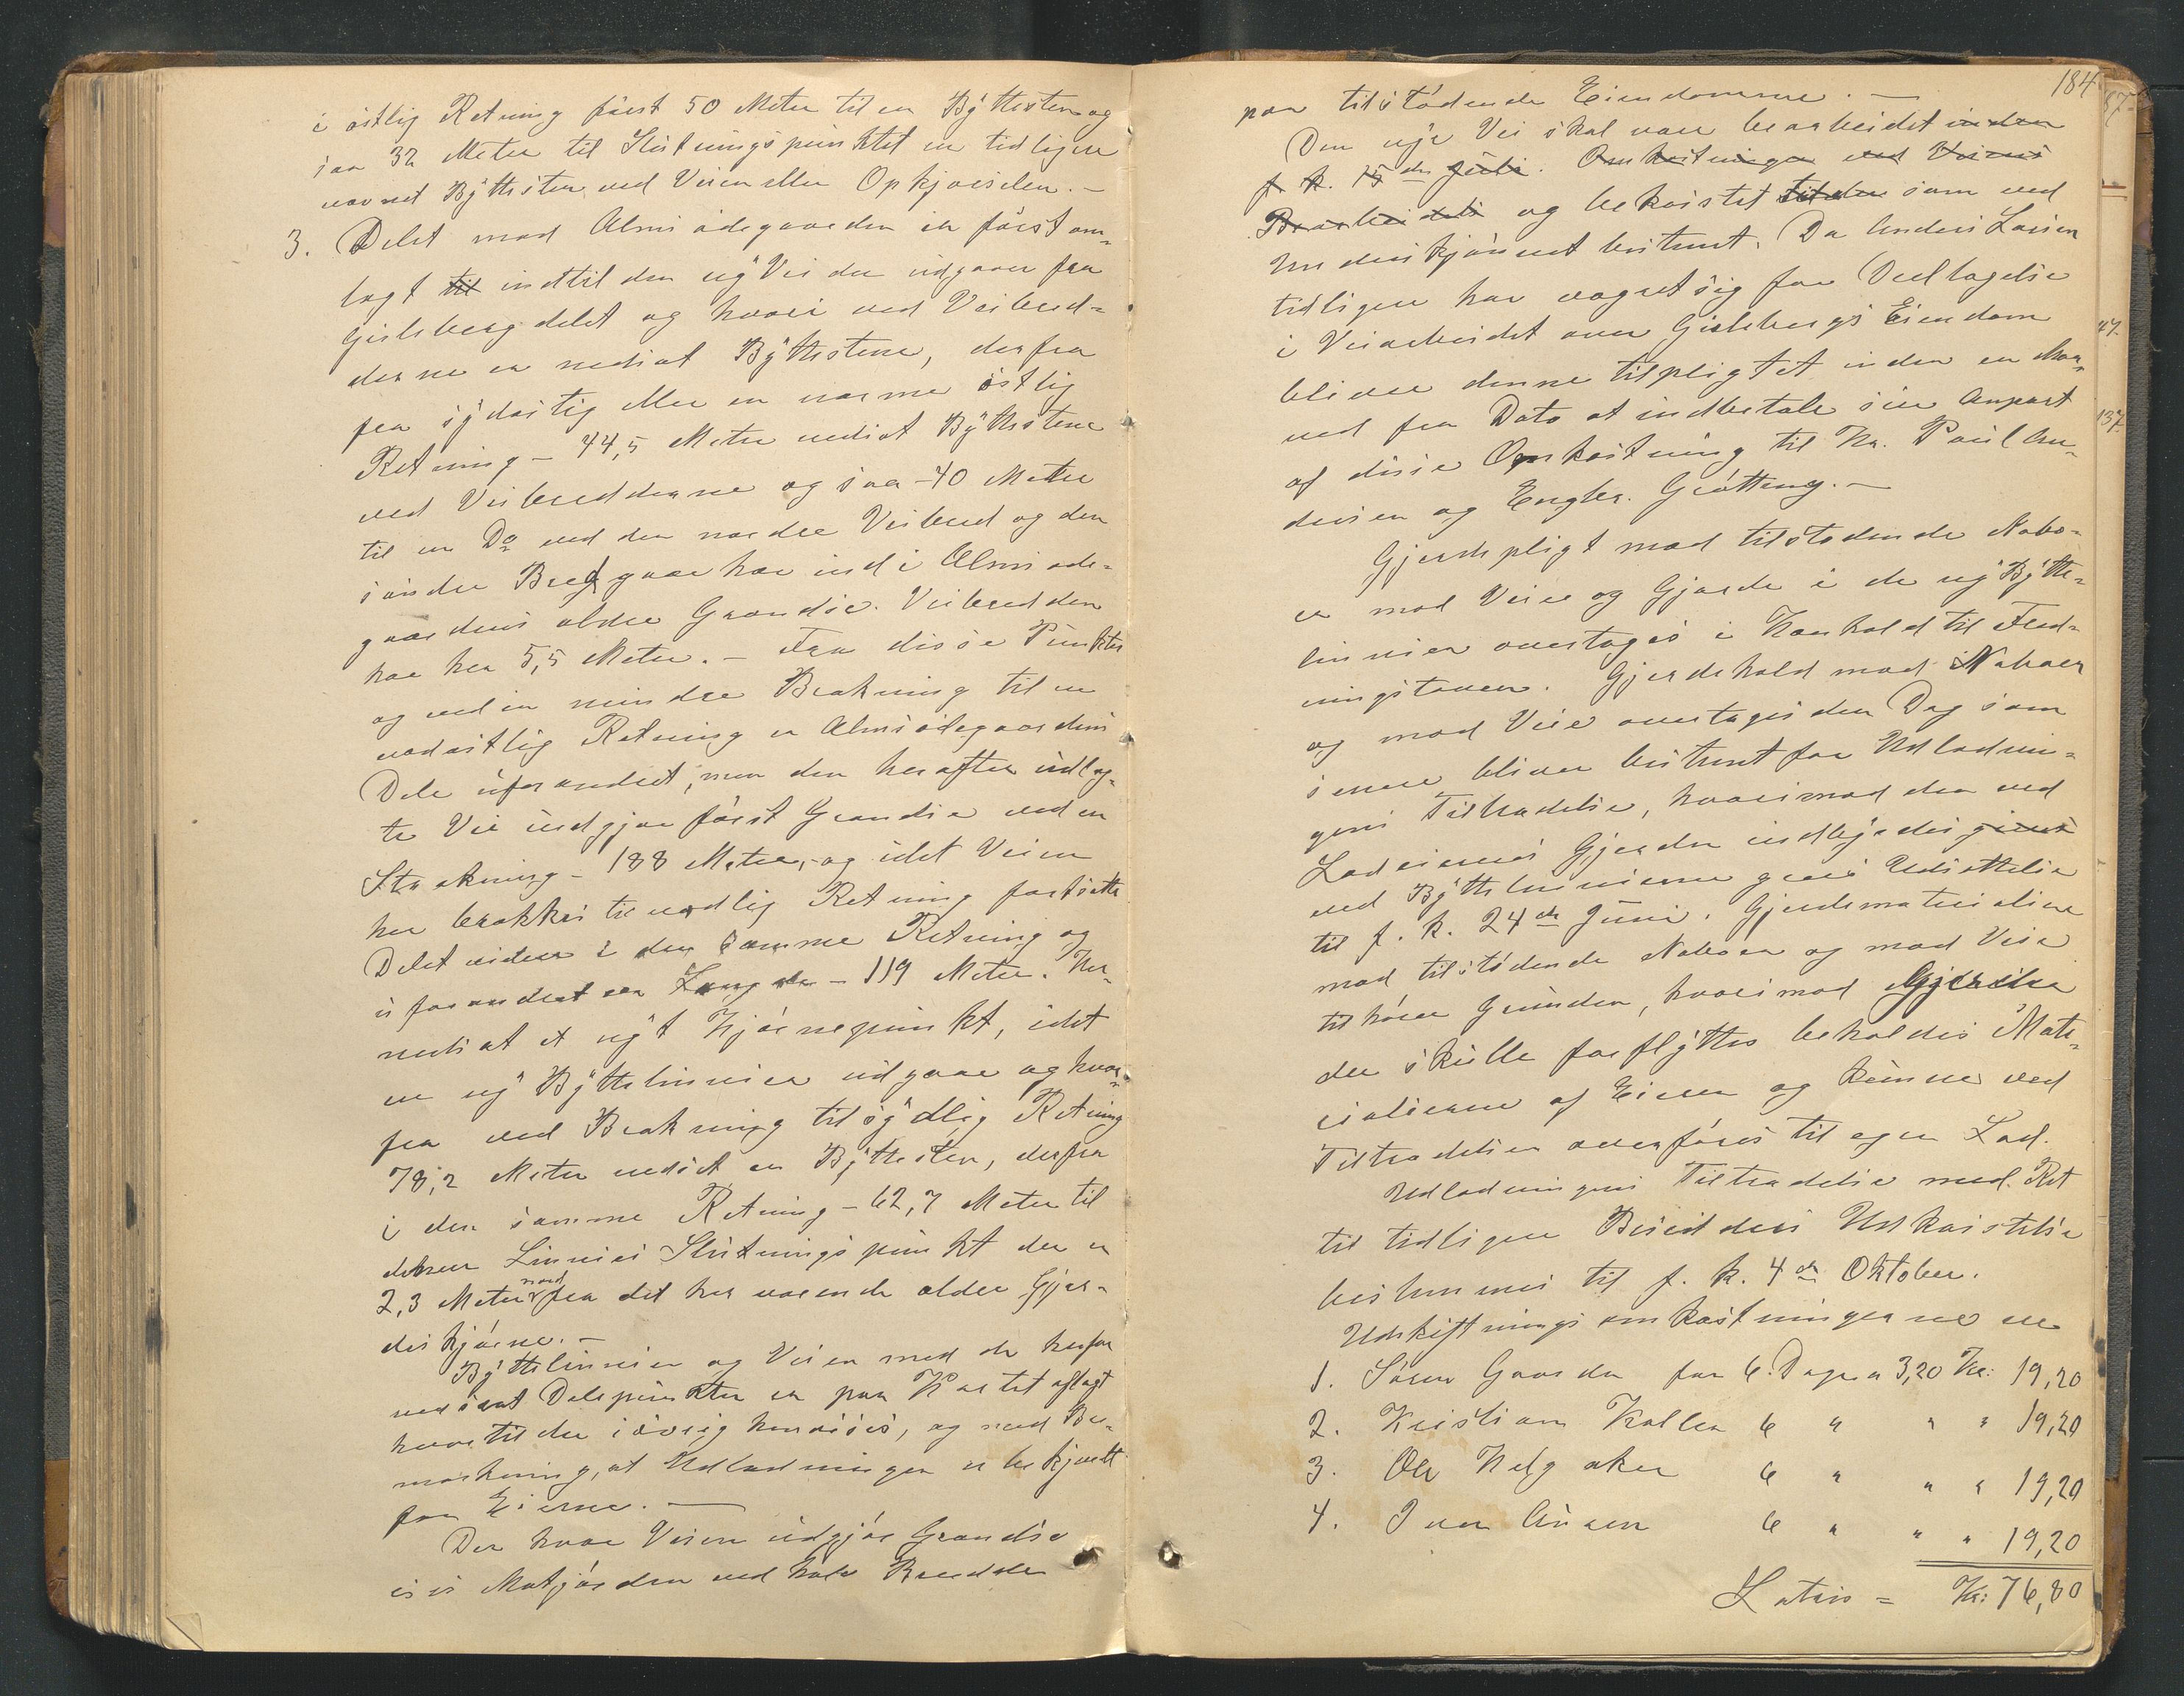 i östlig Retning först 50 Meter til en Bÿttesten og
saa 32 Meter til Slutningspunktet en tidligere
nævnet Bÿttesten ved Veien eller Opkjørselen. –
3. Delet mod Almsødegaarden er først om-
lagt til indtil den nÿ Vei der udgaar fra
Gislebergdelet og hvori ved Veibred-
derne er nedsat Bÿttestene, derfra
fra sÿdøstig eller en nærme östlig
Retning – 44,5 Meter nedsat Bÿttestene
ved Veibredderne og saa – 40 Meter
til en Do ved den nordre Veibred og den
søndre Bred gaar her ind i Almsøde-
gaardens ældre Grændse. Veibredden
har her 5,5 Meter. – Fra disse Punkter
og ved en mindre Brækning til en
nordöstlig Retning er Almsødegaardens
Dele uforandret, men den herefter udlag-
te Vei udgjør først Grændse ved en
Strækning – 188 Meter, og idet Veien
her brækkes til nordlig Retning fortsætter
Delet videre i den samme Retning og
uforandret en Længde – 119 Meter. Her
nedsat et nÿt Hjørnepunkt, idet
en nÿ Bÿttelinnier udgaar og hvor-
fra ved Brækning til sÿdlig Retning
78,2 Meter nedsat en Bÿttesten, derfra
i den samme Retning – 62,7 Meter til
denne Linnies Slutningspunkt der er
2,3 Meter nord fra det her værende ældre Gjær-
deshjørne. –
Bÿttelinnier og Veien med de herfor
nedsat Delepunkter er paa Kartet aflagt
hvortil der iøvrig henvises, og med Be-
mærkning, at Udlodningen er bekjendt
for Eierne. –
Der hvor Veien udgjør Grændse
er Matjorden ved halv Bredde
184
paa tilstödende Eiendomme. –
Den nÿe Vei skal være bearbeidet inden
f. k. 15de Juli. Omkostningen ved Veiens
Bearbeidelse og bekostet som ved
Underskjønnet bestemt. Da Anders Larsen
tidligere har vægret sig for Deeltagelse
i Veiarbeidet over Gislebergs Eiendom
bliver denne tilpligtet inden en Maa-
ned fra Dato at indbetale sin Anpart
af disse Omkostning til Hr. Paul An-
dersen og Engbr. Grötteng. –
Gjerdepligt mod tilstødende Nabo-
er mod Veie og Gjærde i de nÿ Bÿtte-
linnier overtages i Henhold til Fred-
ningsloven. Gjerdehold mod Naboer
og mod Veie overtages den Dag som
senere bliver bestemt for Udlodnin-
gens Tiltrædelse, hvorimod den ved
Lodeiernes Gjerder indbÿrdes
ved Bÿttelinnierne gives Udsættelse
til f. k. 24de Juni. Gjerdematerialier
mod tilstödende Naboer og mod Veie
tilhører Grunden, hvorimod Gjerder
der skulle forflÿttes beholdes Mate-
rialierne af Eieren og kunne ved
Tiltrædelsen overføres til egen Lod.
Udlodningens Tiltrædelse med Ret
til tidligere Besidders Udkastelse
bestemmes til f. k. 4de Oktober.
Udskiftningsomkostningerne er
1. Sören Gaarder for 6 Dage a 3,20 Kr: 19,20
2. Kristian Koller 6 " " " 19,20
3. Ole Helgaker 6 " " " 19,20
4. Iver 6 " " " 19,20
Latris = Kr: 76,80
47.
137